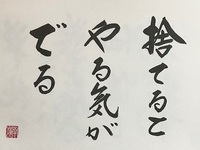 捨てると
やる気が
でる